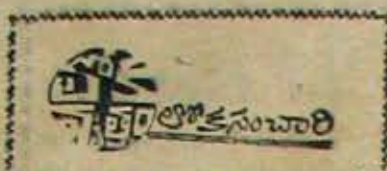 లోకసంచారి